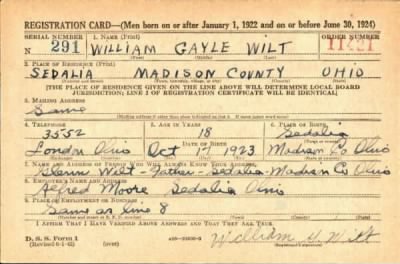 REGISTRATION CARD—(Men born on or after January 1, 1922 and on or before June 30, 1924)
SERIAL NUMBER 1. NAME (Print) ORDER NUMBER
N 291 WILLIAM GAYLE WILT 11221
2. PLACE OF RESIDENCE (Print)
SEDALIA MADISON COUNTY OHIO
[THE PLACE OF RESIDENCE GIVEN ON THE LINE ABOVE WILL DETERMINE LOCAL BOARD
JURISDICTION; LINE 2 OF REGISTRATION CERTIFICATE WILL BE IDENTICAL]
3. MAILING ADDRESS
Same
4. TELEPHONE 5. AGE IN YEARS 6. PLACE OF BIRTH
3552 18 Sedalia
DATE OF BIRTH
London Ohio Oct 17 1923 Madison Co Ohio
7. NAME AND ADDRESS OF PERSON WHO WILL ALWAYS KNOW YOUR ADDRESS
Glenn Wilt - Father - Sedalia - Madison Co Ohio
8. EMPLOYER'S NAME AND ADDRESS
Alfred Moore Sedalia Ohio
9. PLACE OF EMPLOYMENT OR BUSINESS
Same as line 8
I AFFIRM THAT I HAVE VERIFIED ABOVE ANSWERS AND THAT THEY ARE TRUE.
D. S. S. Form 1
(over)
William G. Wilt